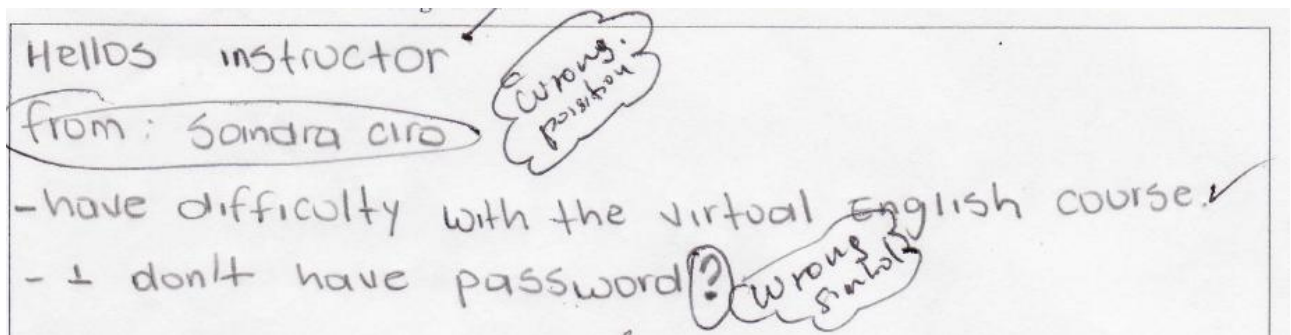 Hellos instructor
from: Sandra ciro
wrong.
poisition
-have difficulty with the virtual English course.
- I don't have password?
wrong
simbol